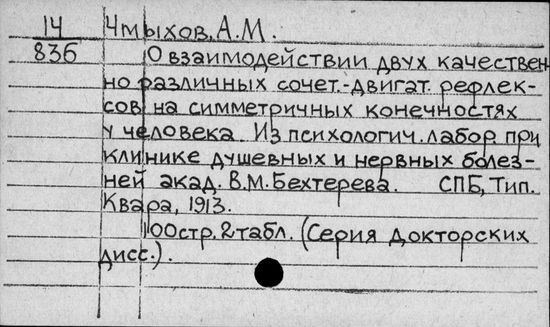 14 Чмыхов, А.М.
836 О взаимодействии двух качествен-
но различных сочет.-двигат. рефлек-
сов на симметричных конечностях
у человека. Из психологич. лабор. при
клинике душевных и нервных болез-
ней акад. В.М. Бехтерева. СПБ, Тип.
Квара, 1913.
100 стр. 2 табл. (Серия докторских
дисс.).